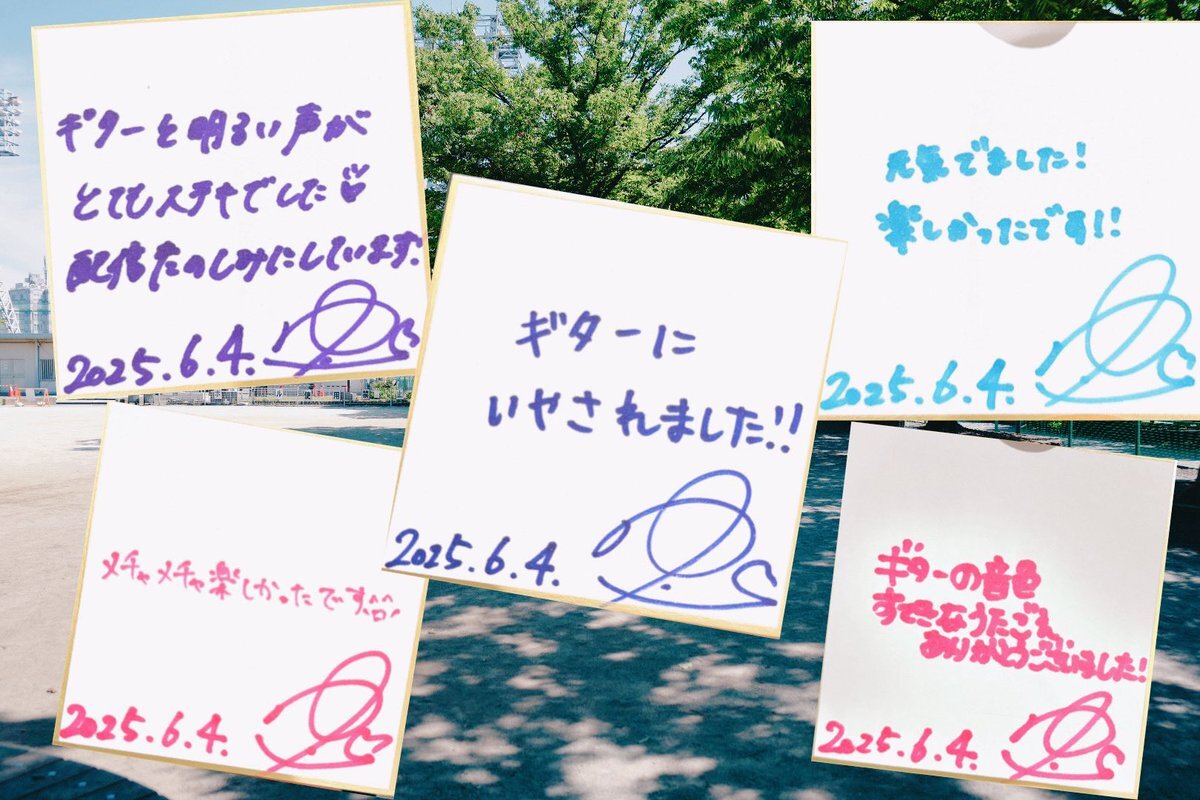 ギターと明るい声が
とてもステキでした
配信たのしみにしています.
2025.6.4.
元気でました!
楽しかったです!!
2025.6.4.
ギターに
いやされました!!
2025.6.4.
メチャメチャ楽しかったです
2025.6.4.
ギターの音色
すてきなうたごえ
ありがとうございました!
2025.6.4.